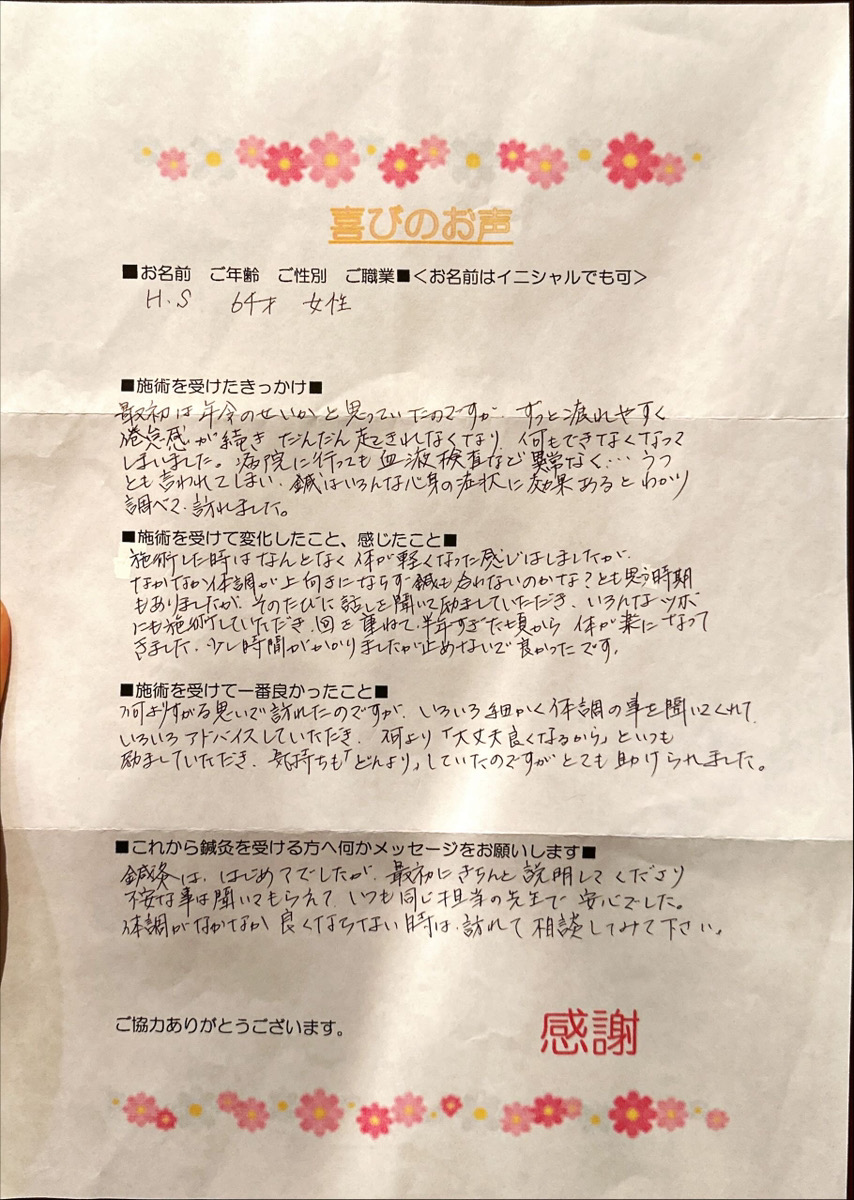 喜びのお声
■お名前 ご年齢 ご性別 ご職業■<お名前はイニシャルでも可>
H.S 64才 女性
■施術を受けたきっかけ■
最初は年令のせいかと思っていたのですが、ずっと疲れやすく
倦怠感が続き だんだん起きれなくなり、何もできなくなって
しまいました。病院に行っても血液検査など異常なく… うつ
とも言われてしまい、鍼はいろんな心身の症状に効果あるとわかり
調べて、訪れました。
■施術を受けて変化したこと、感じたこと■
施術した時はなんとなく体が軽くなった感じはしましたが、
なかなか体調が上向きにならず鍼も合わないのかな?とも思う時期
もありましたが、そのたびに話しを聞いて励ましていただき、いろんなツボ
にも施術していただき、回を重ねて、半年すぎた頃から 体が楽になって
きました。少し時間がかかりましたが止めないで良かったです。
■施術を受けて一番良かったこと■
何よりすがる思いで訪れたのですが、いろいろ細かく体調の事を聞いてくれて、
いろいろアドバイスしていただき、何より「大丈夫良くなるから」といつも
励ましていただき、気持ちも「どんより」していたのですがとても助けられました。
■これから鍼灸を受ける方へ何かメッセージをお願いします■
鍼灸は、はじめてでしたが、最初にきちんと説明してくださり
不安な事は聞いてもらえて、いつも同じ担当の先生で安心でした。
体調がなかなか良くならない時は、訪れて相談してみて下さい。
ご協力ありがとうございます。
感謝